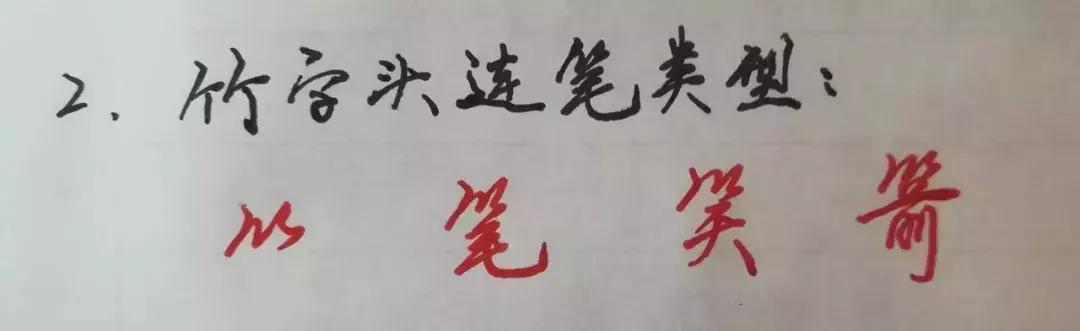 2. 竹字头连笔类型:
⺮ 笔 笑 箭